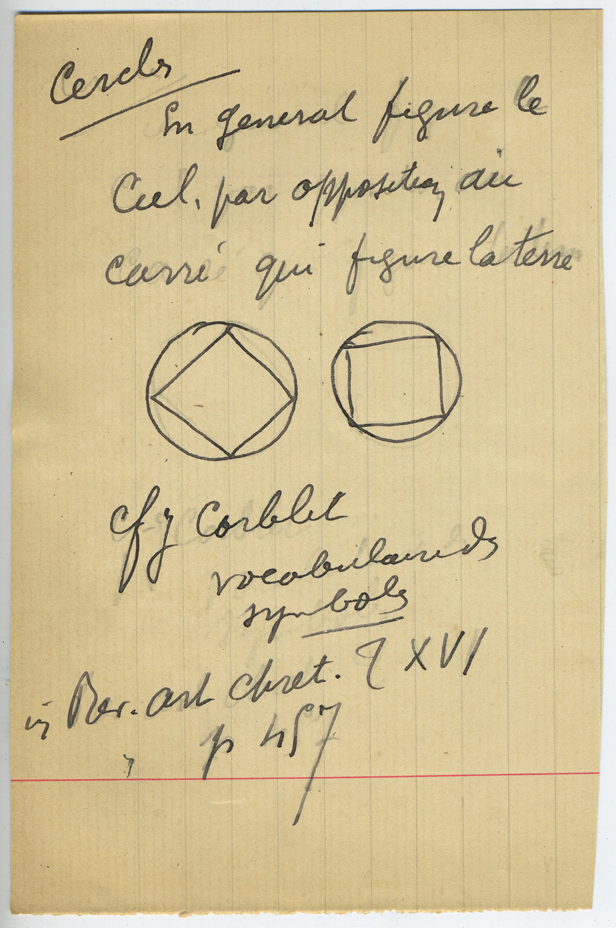 Cercle
En general figure le
Ciel, par opposition au
carré qui figure la terre
cf J Corblet
vocabulaire des
symboles
in Rev. art chret. T XVI
p 457